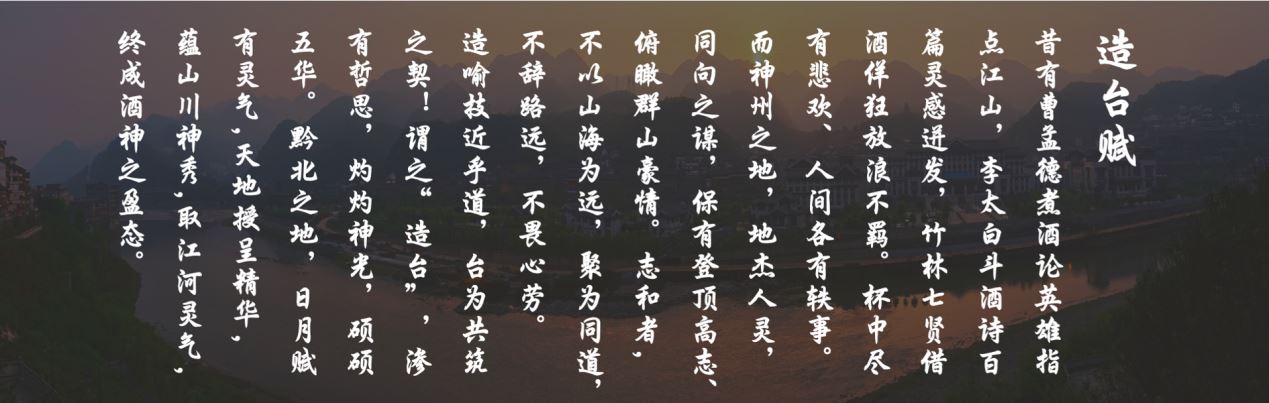 造台赋
昔有曹孟德煮酒论英雄指
点江山，李太白斗酒诗百
篇灵感迸发，竹林七贤借
酒佯狂放浪不羁。杯中尽
有悲欢、人间各有轶事。
而神州之地，地杰人灵，
同向之谋，保有登顶高志、
俯瞰群山豪情。志和者，
不以山海为远，聚为同道，
不辞路远，不畏心劳。
造喻技近乎道，台为共筑
之契！谓之“造台”，渗
有哲思，灼灼神光，硕硕
五华。黔北之地，日月赋
有灵气，天地授呈精华，
蕴山川神秀，取江河灵气，
终成酒神之盈态。